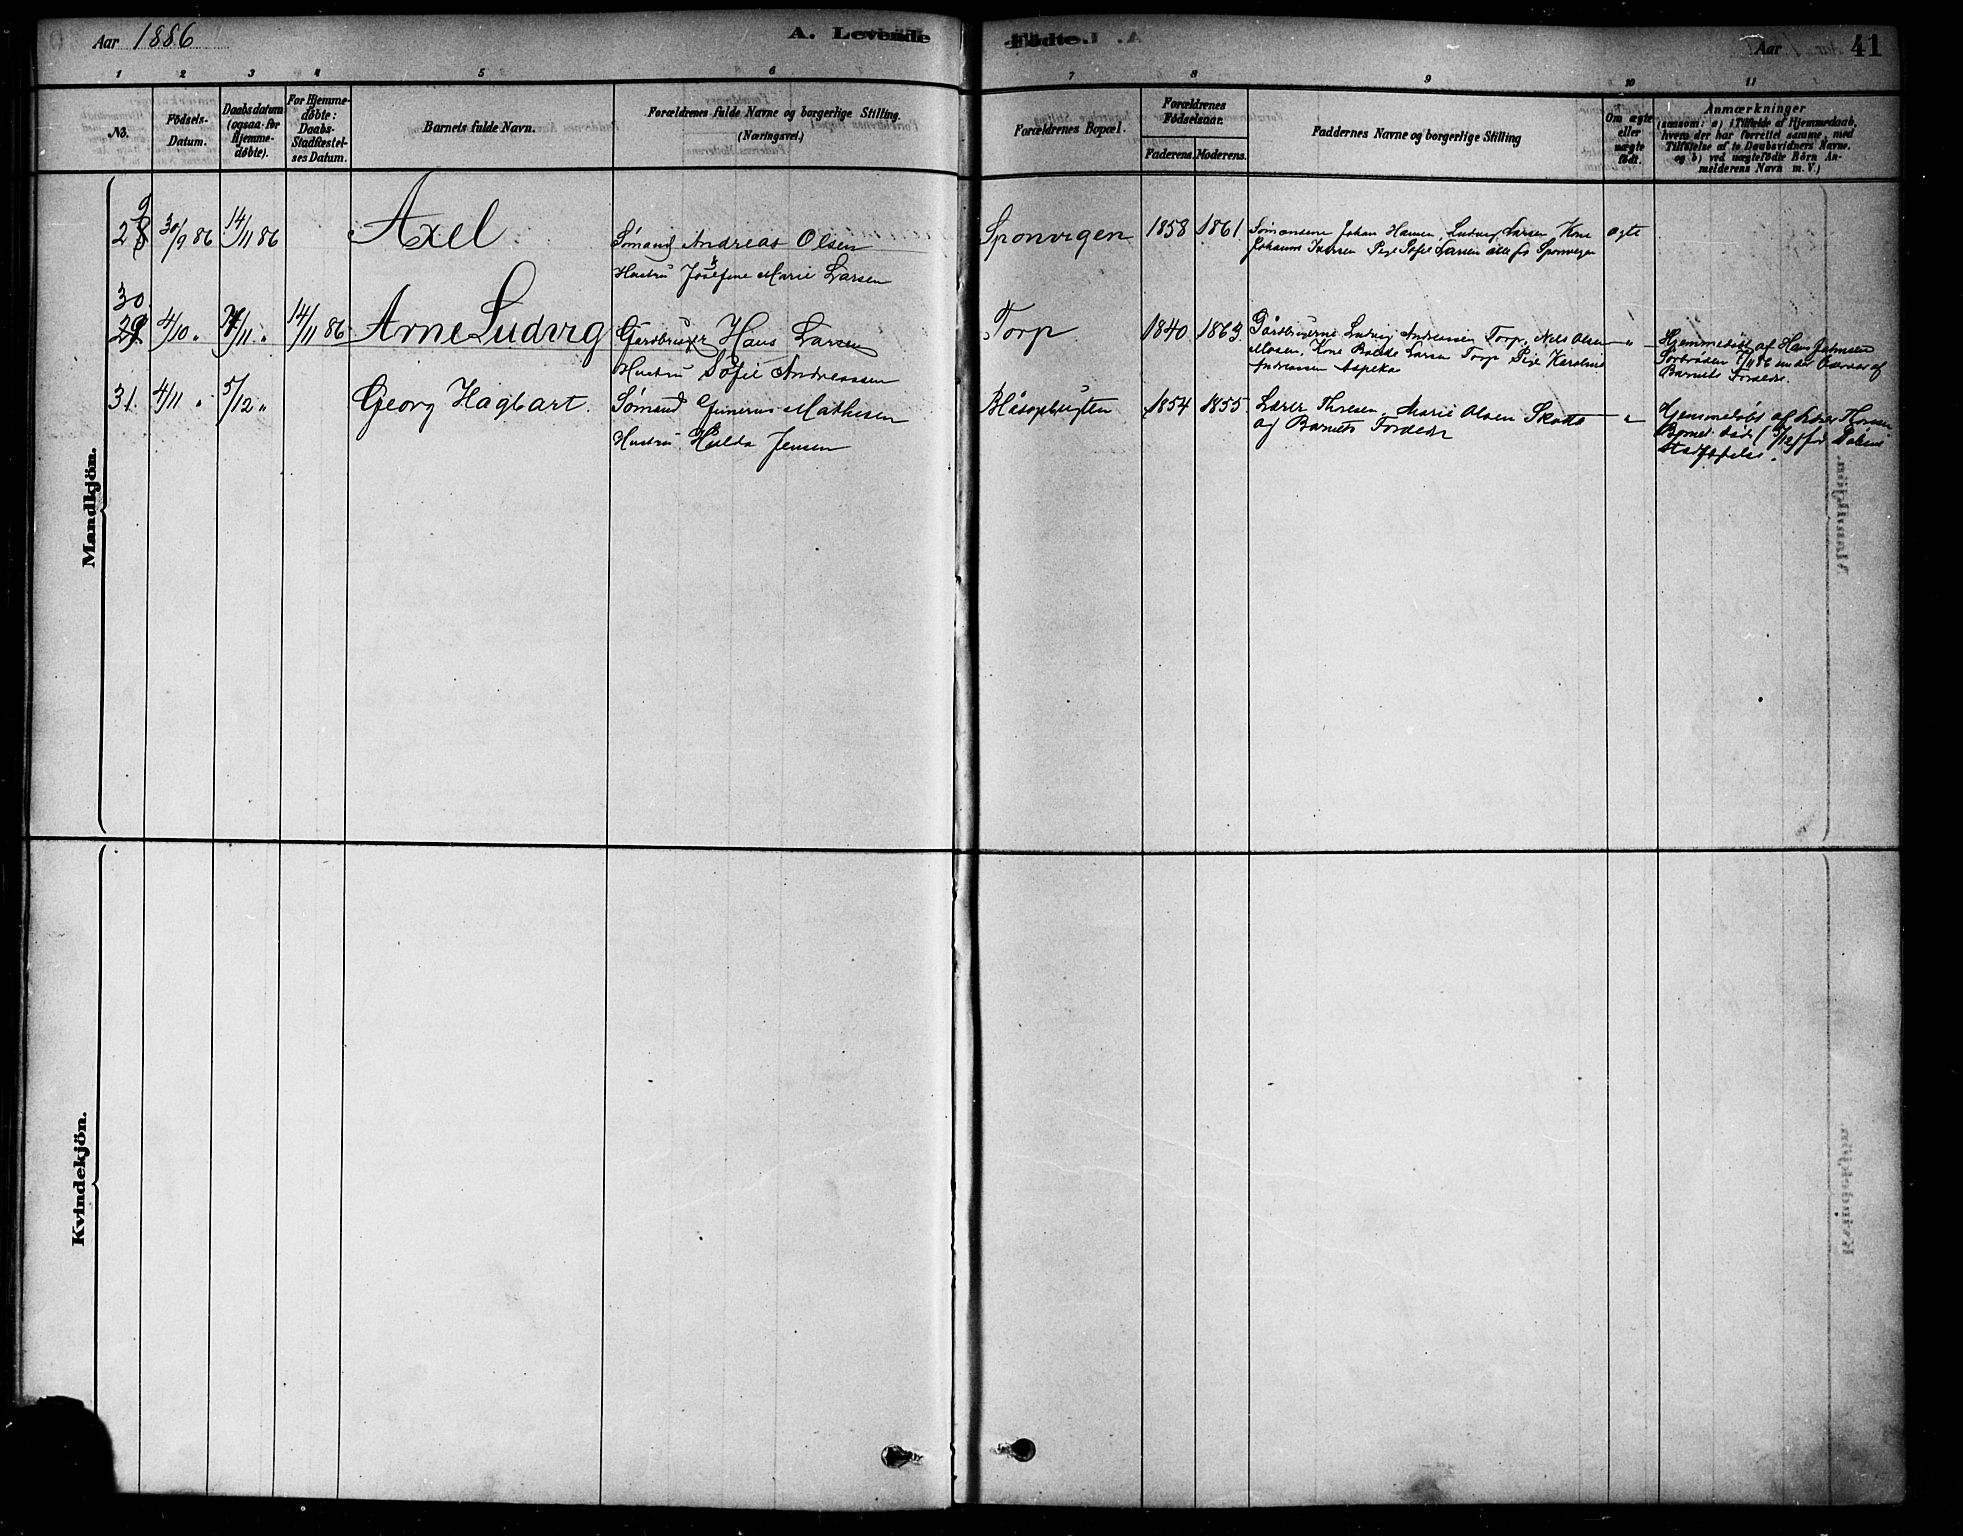 Aar 1886
A. Levende
Födte.
Aar
41
1 2 3 4 5 6 7 8 9 10 11
No.
Födsels-
Datum.
Daabsdatum
(ogsaa for
Hjemme-
døbte).
For Hjemme-
døbte:
Daabs-
Stadfæstel-
ses Datum.
Barnets fulde Navn.
Forældrenes fulde Navne og borgerlige Stilling.
(Næringsvei.)
Forældrenes Bopæl.
Forældrenes
Födselsaar.
Faderens. Moderens.
Faddernes Navne og borgerlige Stilling
Om ægte
eller
uægte
født.
Anmærkninger
(saasom: a) i Tilfælde af Hjemmedaab,
hvem der har forrettet samme, med
Tilføielse af to Daabsvidners Navne,
og b) ved uægtefödte Börn An-
melderens Navn m. V.)
Mandkjön.
9
28 30/9 86 14/11 86 Axel Sömand Andreas Olsen Sponvigen 1858 1861 Sömændene Johan Hansen, Ludvig Larsen, Kone ægte
Hustru Josefine Marie Larsen
Johanne Iversen Pige Sofie Larsen alle fra Sponvigen
30
29 4/10 " 7/11 " 14/11 86 Arne Ludvig Gårdbruger Hans Larsen Torp 1840 1863 Gårdbrugerne Ludvig Andreassen Torp, Nils Olsen "
Hustru Sofie Andreassen
Mosen, Kone Larsen Torp Pige Karoline
Andreassen Aspeka
Hjemmedöbt af Hans Johnsen
7/11 86 under af
Barnets Forældre.
31. 4/11 " 5/12 " Georg Hagbart. Sömand Gunerius Mathisen Blåsopbugten 1854 1855 Lærer Thoresen, Marie Olsen Skotta "
Hustru Hulda Jensen
og Barnets Forældre
Hjemmedöbt af Lærer Thoresen
Barnet död för Daabens
Stadfæstelse.
Kvindekjön.